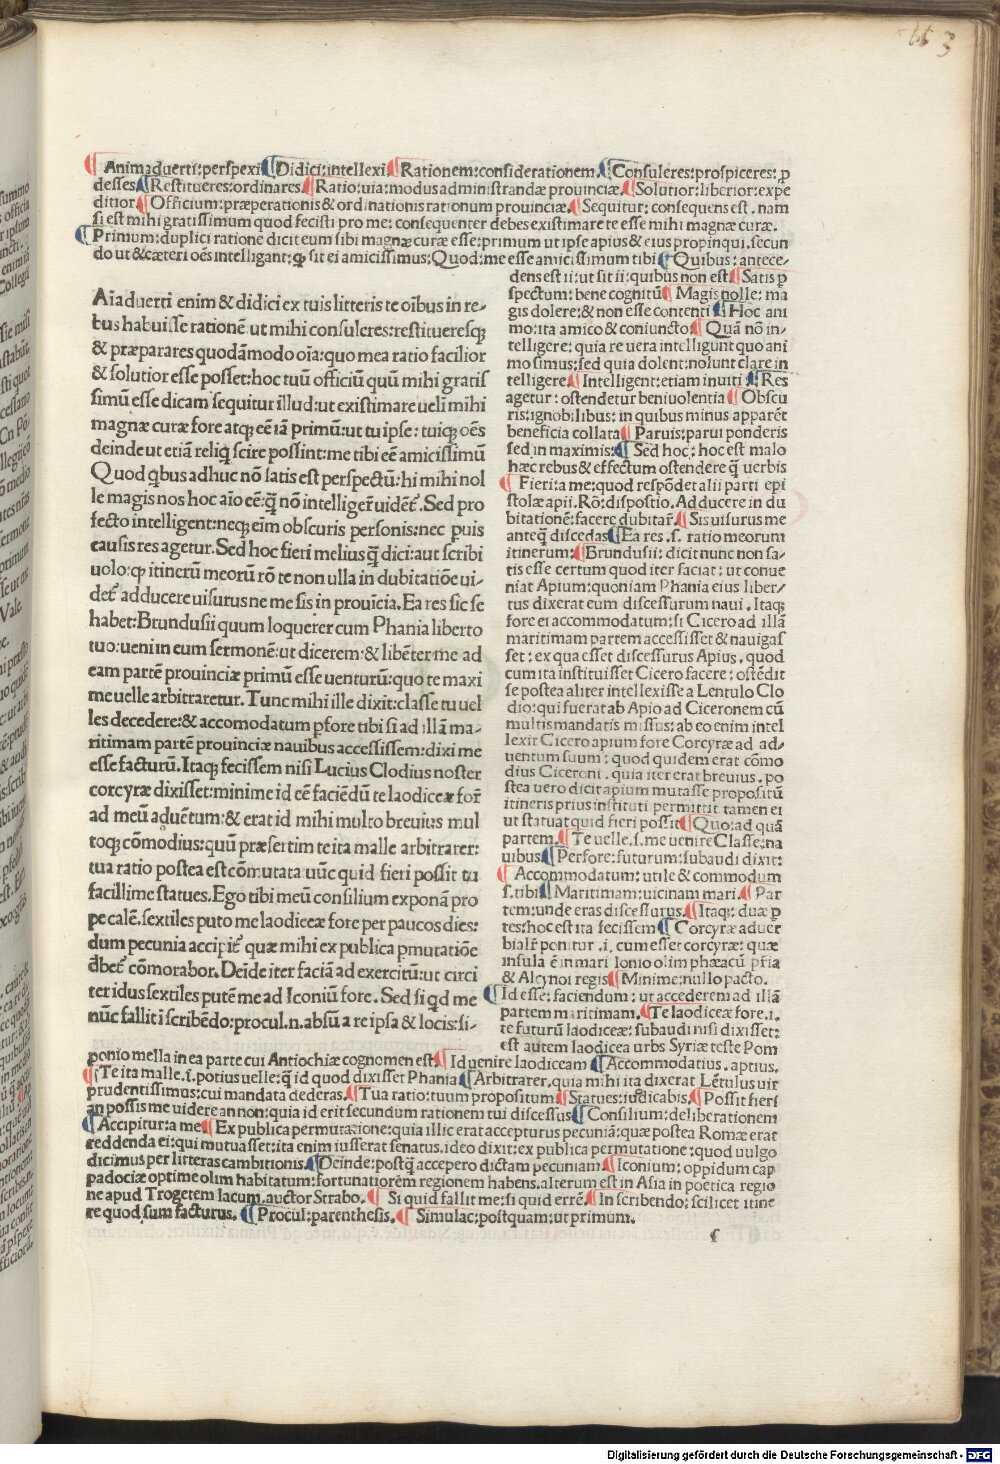 113
¶ Animaduerti: perspexi ¶ Didici: intellexi ¶ Rationem: considerationem ¶ Consuleres: prospiceres: ꝓ
desses ¶ Restitueres: ordinares ¶ Ratio: uia: modus administrandæ prouinciæ ¶ Solutior: liberior: expe
ditior ¶ Officium: præperationis & ordinationis rationum prouinciæ. ¶ Sequitur: consequens est. nam
si est mihi gratissimum quod fecisti pro me: consequenter debes existimare te esse mihi magnæ curæ.
¶ Primum: duplici ratione dicit eum sibi magnæ curæ esse: primum ut ipse apius & eius propinqui. secun
do ut & cæteri oēs intelligant: ꝙ sit ei amicissimus: Quod: me esse amicissimum tibi ¶ Quibus: antece-
dens est ii: ut sit ii: quibus non est ¶ Satis ꝑ
spectum: bene cognitū ¶ Magis nolle: ma
gis dolere: & non esse contenti ¶ Hoc ani
mo: ita amico & coniuncto: ¶ Quā nō in-
telligere: quia re uera intelligunt quo ani
mo simus: sed quia dolent: nolunt clare in
telligere ¶ Intelligent: etiam inuiti ¶ Res
agetur: ostendetur beniuolentia ¶ Obscu
ris: ignobilibus: in quibus minus apparēt
beneficia collata ¶ Paruis: parui ponderis
sed in maximis: ¶ Sed hoc: hoc est malo
hæc rebus & effectum ostendere q̄ uerbis
¶ Fieri: a me: quod respōdet alii parti epi
stolæ apii. Rō: dispositio. Adducere in du
bitationē: facere dubitar̄. ¶ Sis uisurus me
anteq̄ discedas ¶ Ea res .s. ratio meorum
itinerum: ¶ Brundusii: dicit nunc non sa-
tis esse certum quod iter faciat: ut conue
niat Apium: quoniam Phania eius liber-
tus dixerat eum discessurum naui. Itaq;
fore ei accommodatum: si Cicero ad illā
maritimam partem accessisset & nauigas
set: ex qua esset discessurus Apius. quod
cum ita instituisset Cicero facere: ostēdit
se postea aliter intellexisse a Lentulo Clo
dio: qui fuerat ab Apio ad Ciceronem cū
multis mandatis missus: ab eo enim intel
lexit Cicero apium fore Corcyræ ad ad-
uentum suum: quod quidem erat cōmo
dius Ciceroni. quia iter erat breuius. po
stea uero dicit apium mutasse propositū
itineris prius instituti permittit tamen ei
ut statuat quid fieri possit ¶ Quo: ad quā
partem. ¶ Te uelle .s. me uenire Classe: na
uibus ¶ Perfore: futurum: subaudi dixit:
¶ Accommodatum: utile & commodum
s. tibi ¶ Maritimam: uicinam mari. ¶ Par
tem: unde eras discessurus. ¶ Itaq;: duæ ꝑ
tes: hoc est ita fecissem ¶ Corcyræ aduer
bialr̄ ponitur .i. cum esset corcyræ: quæ
insula ē in mari Ionio olim phæacū pr̄ia
& Alcynoi regis ¶ Minime: nullo pacto.
¶ Id esse: faciendum: ut accederem ad illā
partem maritimam. ¶ Te laodiceæ fore .i.
te futurū laodiceæ: subaudi nisi dixisset:
est autem laodicea urbs Syriæ teste Pom
Aīaduerti enim & didici ex tuis litteris te oībus in re-
bus habuisse rationē ut mihi consuleres: restitueresq;
& præparares quodāmodo oīa: quo mea ratio facilior
& solutior esse posset: hoc tuū officiū quū mihi gratis
simū esse dicam sequitur illud: ut existimare ueli mihi
magnæ curæ fore atq; eē iā primū: ut tu ipse: tuiq; oēs
deinde ut etiā reliq scire possint: me tibi eē amicissimū
Quod qbus adhuc nō satis est perspectū: hi mihi nol
le magis nos hoc aīo eē: q̄ nō intelliger̄ uidēt᷑. Sed pro
fecto intelligent: neq; eīm obscuris personis: nec puis
causis res agetur. Sed hoc fieri melius q̄ dici: aut scribi
uolo: ꝙ itinerū meorū rō te non ulla in dubitatiōe ui-
det᷑ adducere uisurus ne me sis in prouīcia. Ea res sic se
habet: Brundusii quum loquerer cum Phania liberto
tuo: ueni in eum sermonē: ut dicerem: & libēter me ad
eam partē prouinciæ primū esse uenturū: quo te maxi
me uelle arbitraretur. Tunc mihi ille dixit: classe tu uel
les decedere: & accomodatum ꝑfore tibi si ad illā ma-
ritimam partē prouinciæ nauibus accessissem: dixi me
esse facturū. Itaq; fecissem nisi Lucius Clodius noster
corcyræ dixisset: minime id eē faciēdū te laodiceæ for̄
ad meū aduētum: & erat id mihi multo breuius mul
toq; cōmodius: quū præsertim te ita malle arbitrarer:
tua ratio postea est cōmutata uūc quid fieri possit tu
facillime statues. Ego tibi meū consilium exponā pro
pe calē. sextiles puto me laodiceæ fore per paucos dies:
dum pecunia accipit᷑ quæ mihi ex publica ꝑmutatiōe
dbet᷑ cōmorabor. Deīde iter faciā ad exercitū: ut circi
ter idus sextiles putē me ad Iconiū fore. Sed si qd me
nūc fallit ī scribēdo: procul .n. absū a re ipsa & locis: si-
ponio mella in ea parte cui Antiochiæ cognomen est ¶ Id uenire laodiceam ¶ Accommodatius. aptius.
¶ Te ita malle .i. potius uelle: q̄ id quod dixisset Phania ¶ Arbitrarer. quia mihi ita dixerat Lētulus uir
prudentissimus: cui mandata dederas. ¶ Tua ratio: tuum propositum ¶ Statues: iudicabis. ¶ Possit fieri
an possis me uidere an non: quia id erit secundum rationem tui discessus ¶ Consilium: deliberationem
¶ Accipitur: a me ¶ Ex publica permutatione: quia illic erat accepturus pecuniā: quæ postea Romæ erat
reddenda ei: qui mutuasset: ita enim iusserat senatus. ideo dixit: ex publica permutatione: quod uulgo
dicimus per litteras cambitionis. ¶ Deinde: postq̄ accepero dictam pecuniam ¶ Iconium: oppidum cap
padociæ optime olim habitatum: fortunatiorēm regionem habens. alterum est in Asia in poetica regio
ne apud Trogetem lacum. auctor Strabo. ¶ Si quid fallit me: si quid errē. ¶ In scribendo: scilicet itine
re quod sum facturus. ¶ Procul: parenthesis. ¶ Simulac: postquam: ut primum.
c
Digitalisierung gefördert durch die Deutsche Forschungsgemeinschaft - DFG